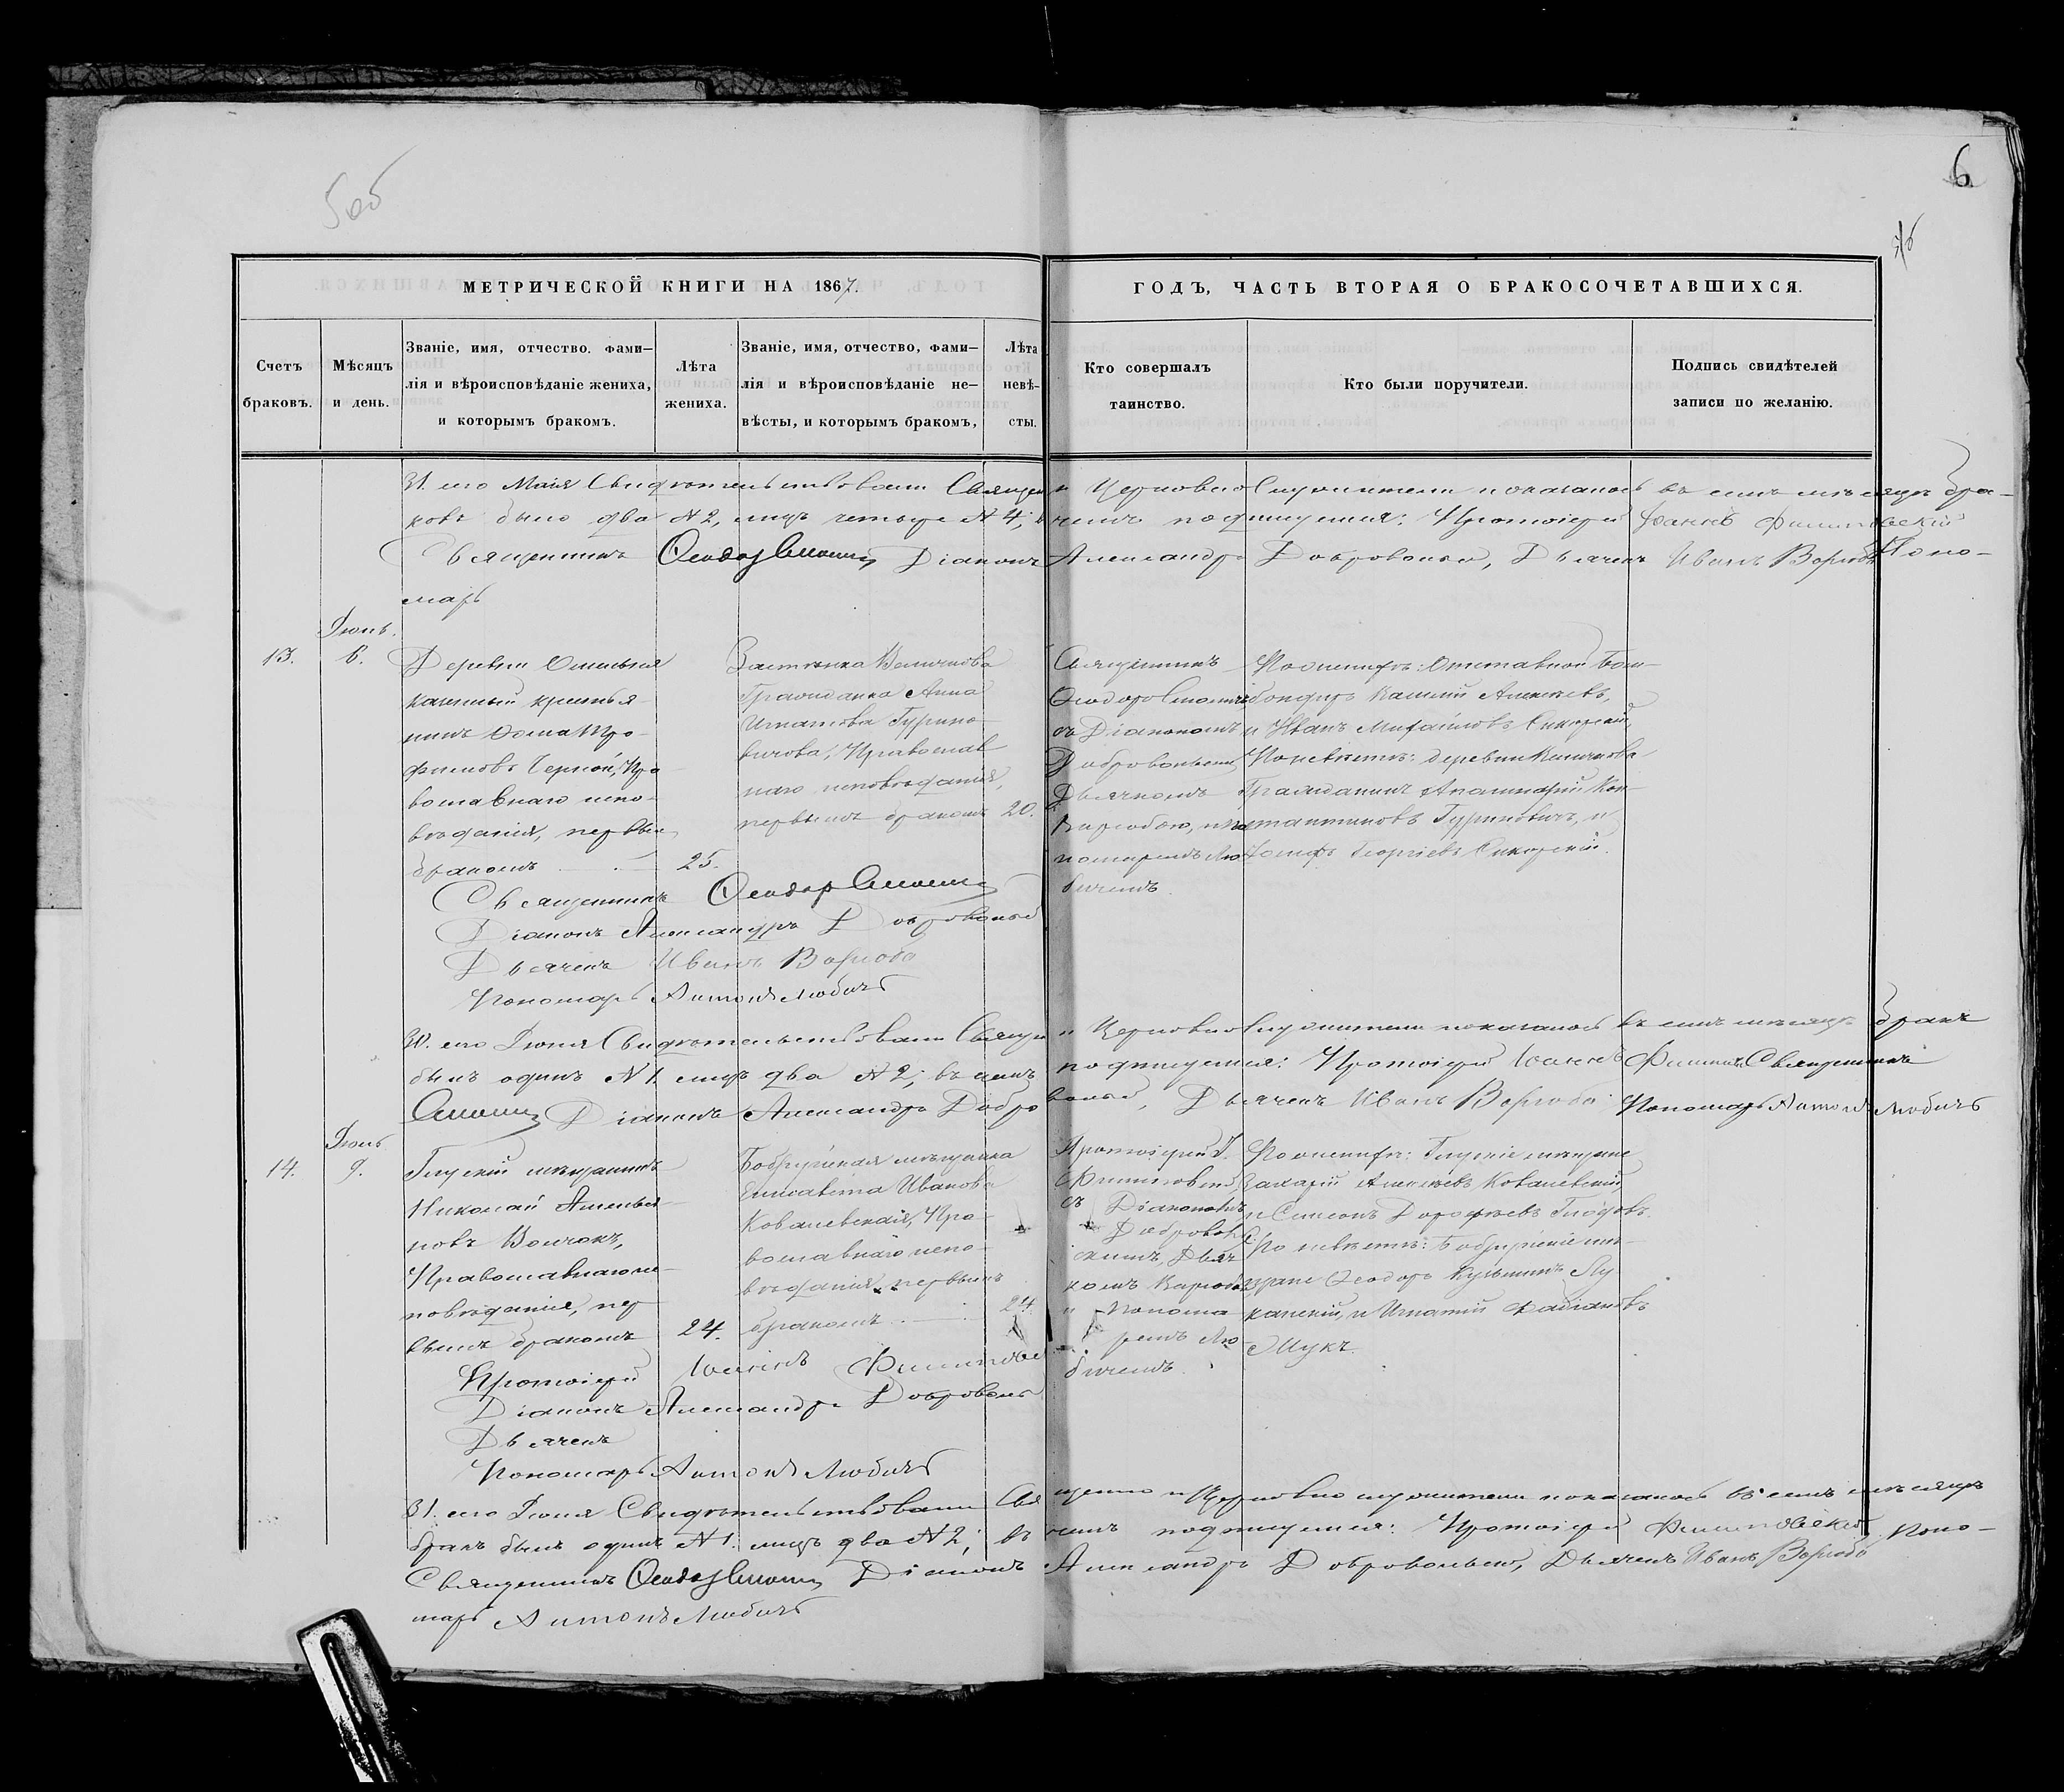 5об
6
МЕТРИЧЕСКОЙ КНИГИ НА 1867.
ГОДЪ, ЧАСТЬ ВТОРАЯ О БРАКОСОЧЕТАВШИХСЯ.
Счетъ браковъ.
Мѣсяцъ и день.
Званіе, имя, отчество. фами—
лія и вѣроисповѣданіе жениха,
и которымъ бракомъ.
Лѣта жениха.
Званіе, имя, отчество, фами—
лія и вѣроисповѣданіе не—
вѣсты, и которымъ бракомъ,
Лѣта
невѣ-
сты.
Кто совершалъ
таинство.
Кто были поручители.
Подпись свидѣтелей
записи по желанію.
31. его Маія Свидѣтельствовали Священно Церковно Служители показаность въ семъ мѣсяцѣ бра—
ковъ было два N 2, лицъ четыре N 4; въ чемъ подпишемся: Протоіерей Іоаннъ Филиповскій
Священникъ Ѳеодоръ Діаконъ Александръ Добровольск, Дьячекъ Иванъ Варгоба Поно—
марь
Іюнь.
13.
6.
Деревни
казенный крестья-
нинъ Ѳома Тро-
фимовъ Черной, Пра
вославнаго испо-
вѣданія, первым
бракомъ
25.
Застѣнка
Гражданка Анна
Игнатова Гурино-
вичова, Православ
наго исповѣданія,
первымъ бракомъ
20.
Священникъ
Ѳеодоръ
съ Діакономъ
Добровольским
Дьячкомъ
Варгобою, и по
номаремъ Лю
бичемъ.
По женихѣ: Отставной Бом—
бондиръ Алексѣевъ,
и Иванъ Михайловъ Сикорскій,
По невѣстѣ: деревни
Гражданинъ Апалинарій Кон-
стантиновъ Гуриновичъ, и
Іосифъ Георгіевъ Сикорскій.
Священникъ Ѳеодоръ
Діаконъ Александръ Добровольск
Дьячекъ Иванъ Варгоба
Пономарь Антонъ Любичъ
30. его Іюня Свидѣтельствовали Священно Церковно Служители показаность въ семъ мѣсяцѣ бракъ
былъ одинъ N 1 лицъ два N 2; въ чемъ подпишемся: Протоіерей Іоаннъ Филипов Священникъ
Діаконъ Александръ Добровольск, Дьячекъ Иванъ Варгоба Пономарь Антонъ Любичъ
Іюль
14.
9.
Глускій мѣщанинъ
Николай Емелья-
новъ Волчокъ,
Православнаго ис-
повѣданія, пер
вымъ бракомъ
24.
Бобруйская мѣщанка
Елисавета Иванова
Ковалевская, Пра-
вославнаго испо-
вѣданія первымъ
бракомъ
24.
Протоіерей І.
Филиповскій
съ Діакономъ
Доброволь
скимъ, Дьяч
комъ Варгобою
и Понома
ремъ Лю
бичемъ.
По женихѣ: Глускіе мѣщане
Захарій Алексѣевъ Ковалевскій,
и Симеонъ Дорофѣевъ
По невѣстѣ: Бобруйскіе мѣ-
щане Ѳеодоръ Кузьминъ Лу
канскій, и Игнатій Фабіановъ
Мукъ.
Протоіерей Іоаннъ Филиповс
Діаконъ Александръ Доброволь
Дьячекъ
Пономарь Антонъ Любичъ
31. его Іюля Свидѣтельствовали Священно и Церковно служители показаность въ семъ мѣсяцѣ
бракъ былъ одинъ N 1. лицъ два N 2; въ чемъ подпишемся: Протоіерей Филиповскій Поно—
Священникъ Ѳеодоръ Діаконъ Александръ Добровольск, Дьячекъ Иванъ Варгоба
марь Антонъ Любичъ